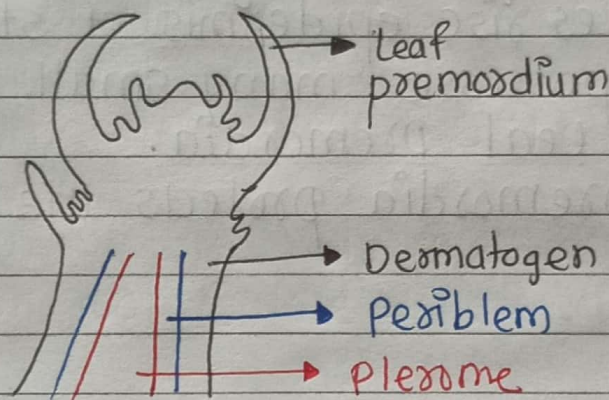 Leaf
premordium
Dermatogen
Periblem
Plerome